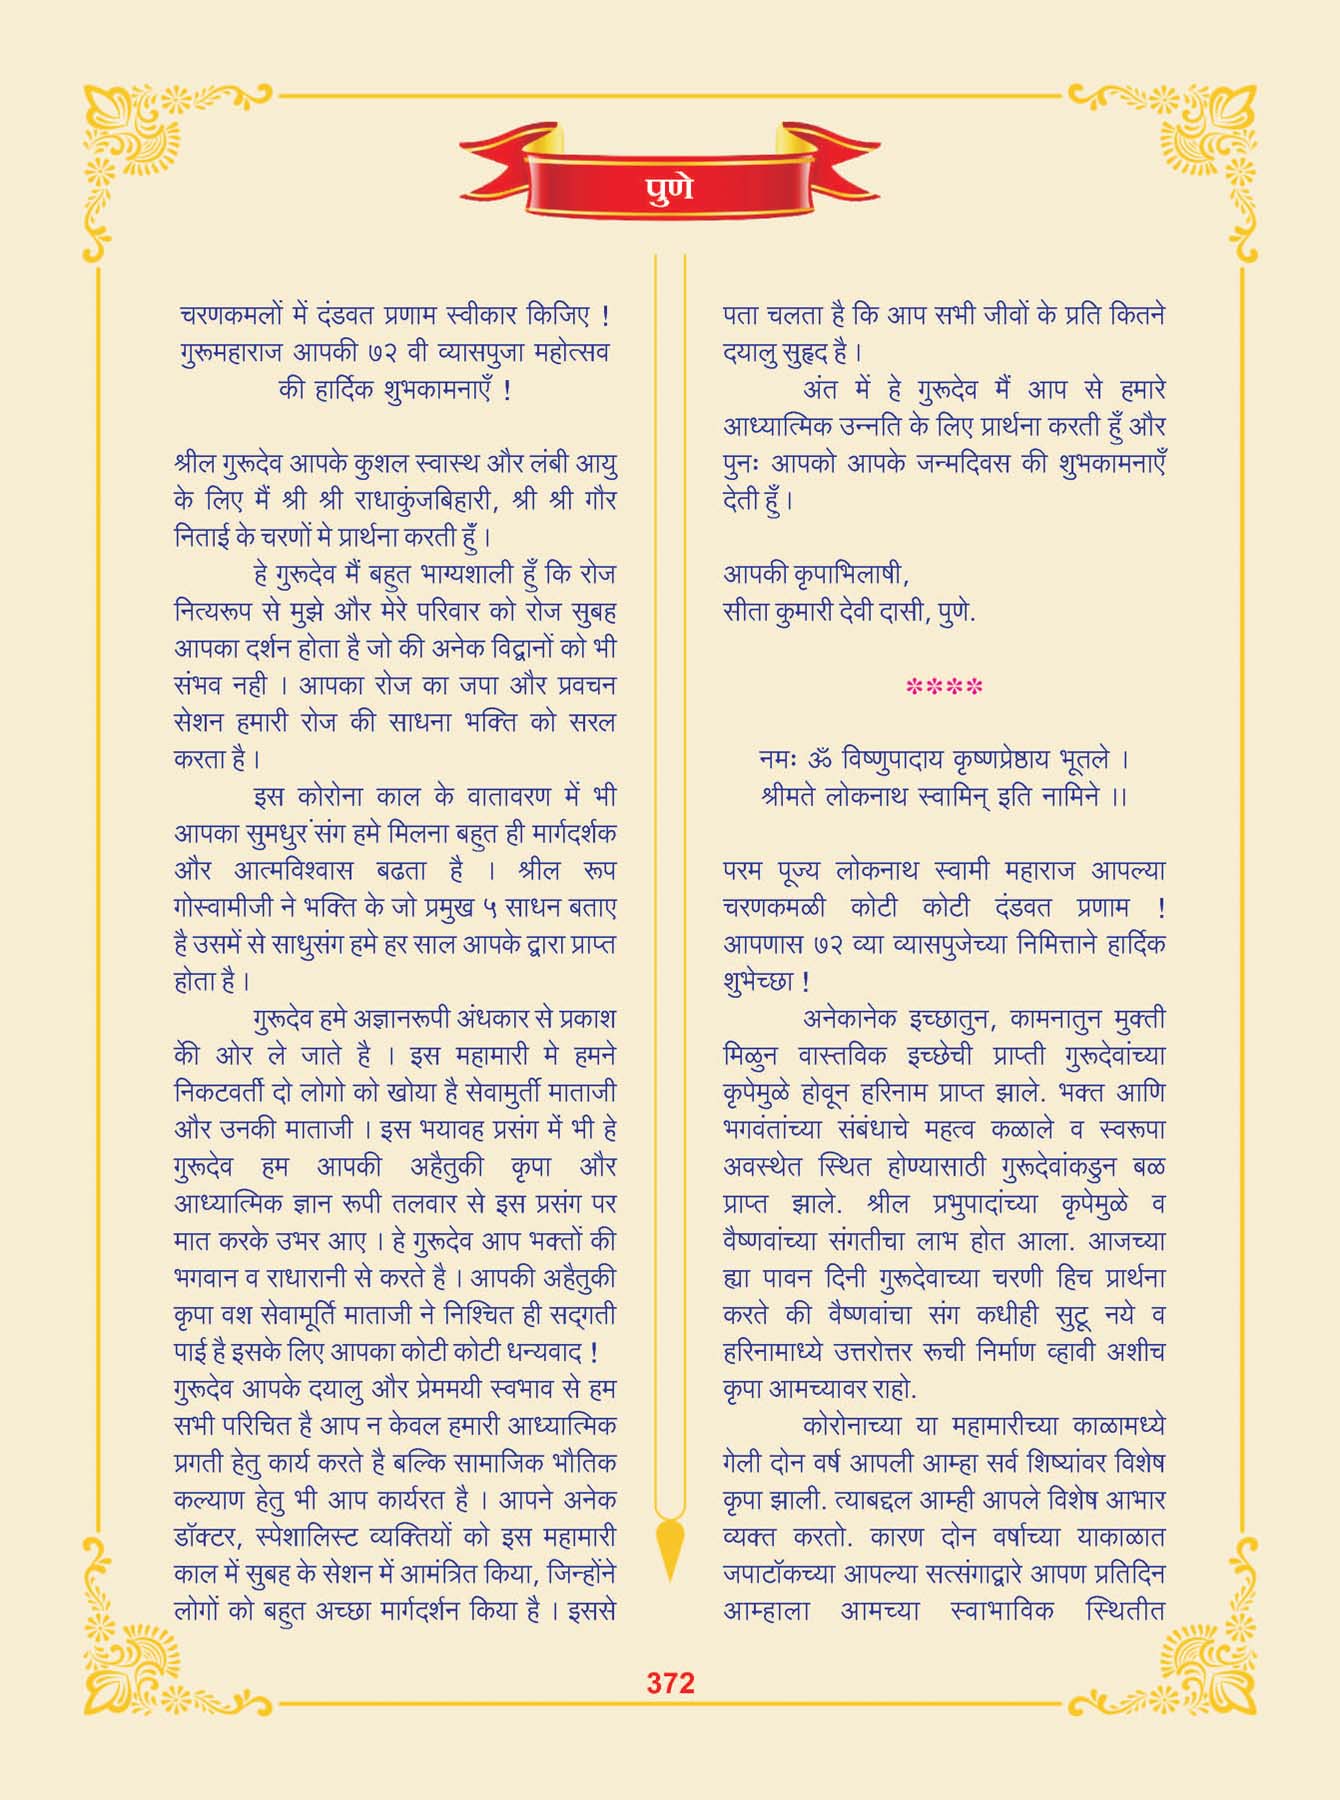 पुणे
चरणकमलों में दंडवत प्रणाम स्वीकार किजिए !
गुरूमहाराज आपकी ७२ वी व्यासपुजा महोत्सव
की हार्दिक शुभकामनाएँ !
श्रील गुरूदेव आपके कुशल स्वास्थ और लंबी आयु
के लिए मैं श्री श्री राधाकुंजबिहारी, श्री श्री गौर
निताई के चरणों मे प्रार्थना करती हुँ ।
हे गुरूदेव मैं बहुत भाग्यशाली हुँ कि रोज
नित्यरूप से मुझे और मेरे परिवार को रोज सुबह
आपका दर्शन होता है जो की अनेक विद्वानों को भी
संभव नही । आपका रोज का जपा और प्रवचन
सेशन हमारी रोज की साधना भक्ति को सरल
करता है ।
इस कोरोना काल के वातावरण में भी
आपका सुमधुर संग हमे मिलना बहुत ही मार्गदर्शक
और आत्मविश्वास बढता है । श्रील रूप
गोस्वामीजी ने भक्ति के जो प्रमुख ५ साधन बताए
है उसमें से साधुसंग हमे हर साल आपके द्वारा प्राप्त
होता है ।
गुरूदेव हमे अज्ञानरूपी अंधकार से प्रकाश
की ओर ले जाते है । इस महामारी मे हमने
निकटवर्ती दो लोगो को खोया है सेवामुर्ती माताजी
और उनकी माताजी । इस भयावह प्रसंग में भी हे
गुरूदेव हम आपकी अहैतुकी कृपा और
आध्यात्मिक ज्ञान रूपी तलवार से इस प्रसंग पर
मात करके उभर आए । हे गुरूदेव आप भक्तों की
भगवान व राधारानी से करते है । आपकी अहैतुकी
कृपा वश सेवामूर्ति माताजी ने निश्चित ही सद्‌गती
पाई है इसके लिए आपका कोटी कोटी धन्यवाद !
गुरूदेव आपके दयालु और प्रेममयी स्वभाव से हम
सभी परिचित है आप न केवल हमारी आध्यात्मिक
प्रगती हेतु कार्य करते है बल्कि सामाजिक भौतिक
कल्याण हेतु भी आप कार्यरत है । आपने अनेक
डॉक्टर, स्पेशालिस्ट व्यक्तियों को इस महामारी
काल में सुबह के सेशन में आमंत्रित किया, जिन्होंने
लोगों को बहुत अच्छा मार्गदर्शन किया है । इससे
पता चलता है कि आप सभी जीवों के प्रति कितने
दयालु सुहृद है ।
अंत में हे गुरूदेव मैं आप से हमारे
आध्यात्मिक उन्नति के लिए प्रार्थना करती हुँ और
पुनः आपको आपके जन्मदिवस की शुभकामनाएँ
देती हुँ ।
आपकी कृपाभिलाषी,
सीता कुमारी देवी दासी, पुणे.
****
नमः ॐ विष्णुपादाय कृष्णप्रेष्ठाय भूतले ।
श्रीमते लोकनाथ स्वामिन् इति नामिने ।।
परम पूज्य लोकनाथ स्वामी महाराज आपल्या
चरणकमळी कोटी कोटी दंडवत प्रणाम !
आपणास ७२ व्या व्यासपुजेच्या निमित्ताने हार्दिक
शुभेच्छा !
अनेकानेक इच्छातुन, कामनातुन मुक्ती
मिळुन वास्तविक इच्छेची प्राप्ती गुरूदेवांच्या
कृपेमुळे होवून हरिनाम प्राप्त झाले. भक्त आणि
भगवंतांच्या संबंधाचे महत्व कळाले व स्वरूपा
अवस्थेत स्थित होण्यासाठी गुरूदेवांकडुन बळ
प्राप्त झाले. श्रील प्रभुपादांच्या कृपेमुळे व
वैष्णवांच्या संगतीचा लाभ होत आला. आजच्या
ह्या पावन दिनी गुरूदेवाच्या चरणी हिच प्रार्थना
करते की वैष्णवांचा संग कधीही सुटू नये व
हरिनामाध्ये उत्तरोत्तर रूची निर्माण व्हावी अशीच
कृपा आमच्यावर राहो.
कोरोनाच्या या महामारीच्या काळामध्ये
गेली दोन वर्ष आपली आम्हा सर्व शिष्यांवर विशेष
कृपा झाली. त्याबद्दल आम्ही आपले विशेष आभार
व्यक्त करतो. कारण दोन वर्षाच्या याकाळात
जपाटॉकच्या आपल्या सत्संगाद्वारे आपण प्रतिदिन
आम्हाला आमच्या स्वाभाविक स्थितीत
372